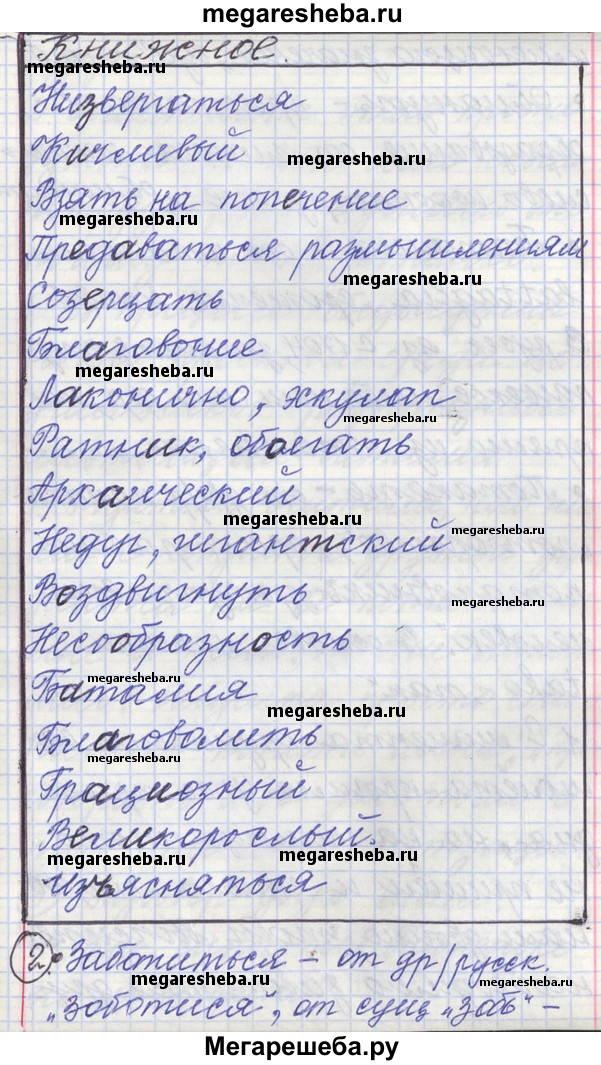 megaresheba.ru
Книжное.
megaresheba.ru
Низвергаться
Кичливый
megaresheba.ru
Взять на попечение
megaresheba.ru
Предаваться размышлениям
megaresheba.ru
Созерцать
Благовоние
megaresheba.ru
Лаконично, эскулап
megaresheba.ru
Ратник, оболгать
Архаический
megaresheba.ru
Недуг, гигантский
megaresheba.ru
Воздвигнуть
megaresheba.ru
Несообразность
megaresheba.ru
Баталия
megaresheba.ru
Благоволить
Грациозный
Великорослый.
megaresheba.ru
megaresheba.ru
Изъясняться
2. Заботиться – от др/русск.
megaresheba.ru
„зоботися", от сущ „зобь" –
megaresheba.ru
Мегарешеба.ру